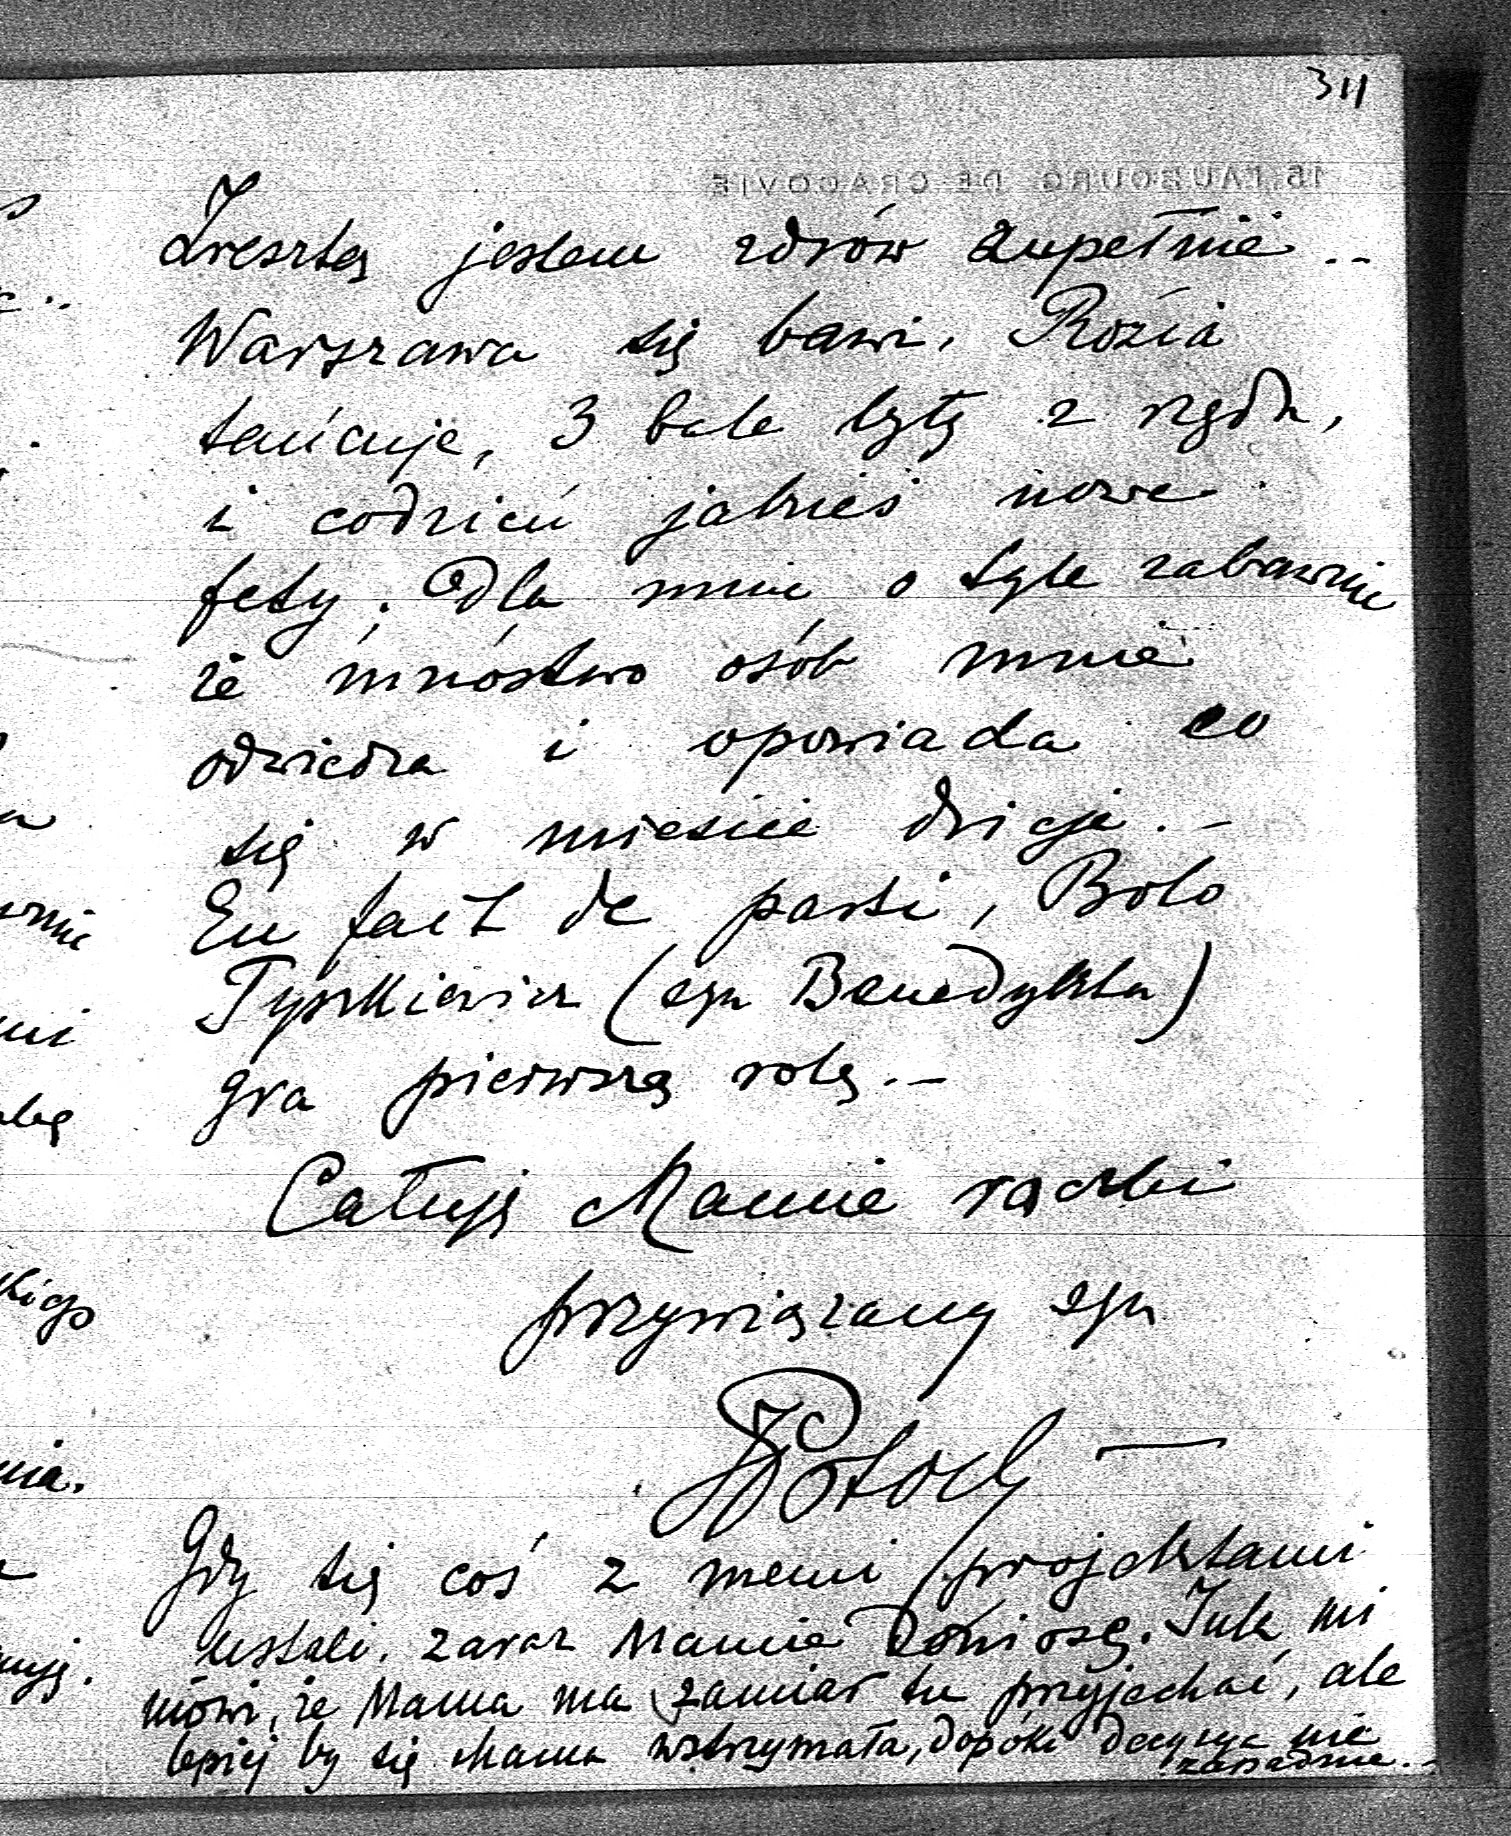 311
15, FAUBOURG DE CRACOVIE
Zresztą jestem zdrów zupełnie..
Warszawa się bawi, Rózia
tańcuje, 3 bale były z rzędu,
i codzień jakieś nowe
fety. Dla mnie o tyle zabawnie
że mnóstwo osób mnie
odwiedza i opowiada co
się w mieście dzieje.–
En fait de parti, Bolo
Tyszkiewicz (syn Benedykta)
gra pierwszą rolę.–
Całuję Mamie rączki
przywiązany syn
Potocki
Gdy się coś z memi projektami
ustali. zaraz Mamie doniosę. Jul. mi
mówi, że Mama ma zamiar tu przyjechać, ale
lepiej by się Mama wstrzymała, dopóki decyzya nie
zapadnie..